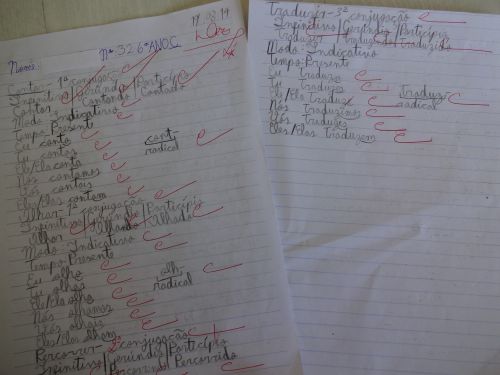 19.08.19
Nome: Nº 32 6º ANO C
Contar 1ª conjugação
Infinitivo | Gerúndio | Particípio
Contar | Contando | Contado
Modo: Indicativo
Tempo: Presente
Eu conto
Tu contas
Ele/Ela conta
Nós contamos
Vós contais
Eles/Elas contam
cont
radical
Olhar 1ª conjugação
Infinitivo | Gerúndio | Particípio
Olhar | Olhando | Olhado
Modo: Indicativo
Tempo: Presente
Eu olho
Tu olhas
Ele/Ela olha
Nós olhamos
Vós olhais
Eles/Elas olham
olh
radical
Percorrer 2ª conjugação
Infinitivo | Gerúndio | Particípio
Percorrido
Traduzir - 3ª conjugação
Infinitivo | Gerúndio | Particípio
Traduzir | Traduzindo | Traduzido
Modo: Indicativo
Tempo: Presente
Eu traduzo
Tu traduzes
Ele/Ela Traduz
Nós Traduzimos
Vós Traduzes
Eles/Elas Traduzem
Traduz
radical